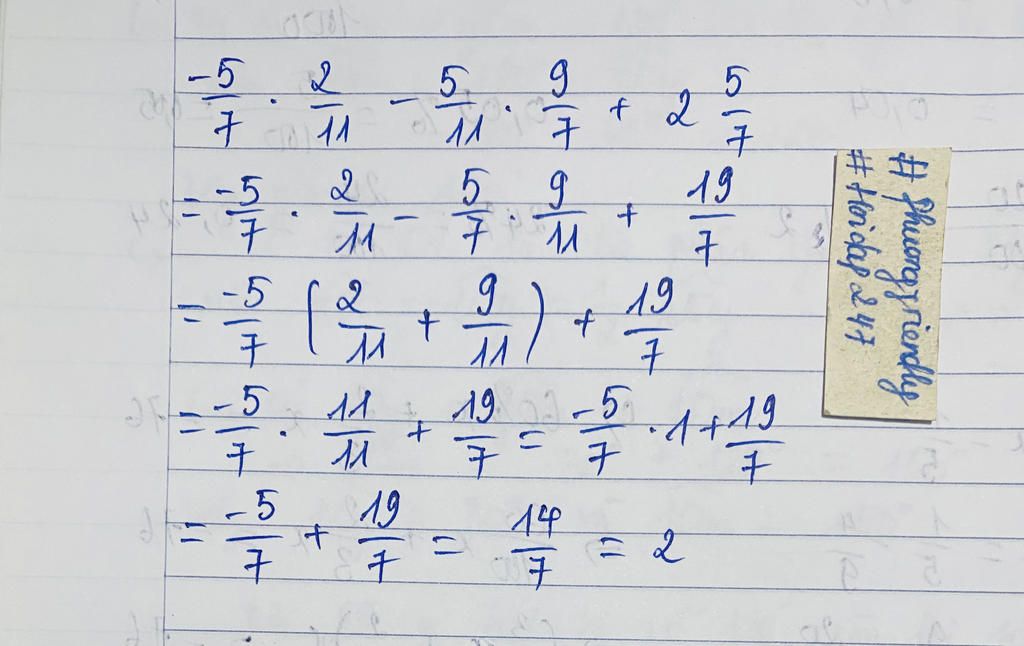 -5/7 · 2/11 - 5/11 · 9/7 + 2 5/7
= -5/7 · 2/11 - 5/7 · 9/11 + 19/7
= -5/7 (2/11 + 9/11) + 19/7
= -5/7 · 11/11 + 19/7 = -5/7 · 1 + 19/7
= -5/7 + 19/7 = 14/7 = 2
# phuongfriendly
# Hoidap247